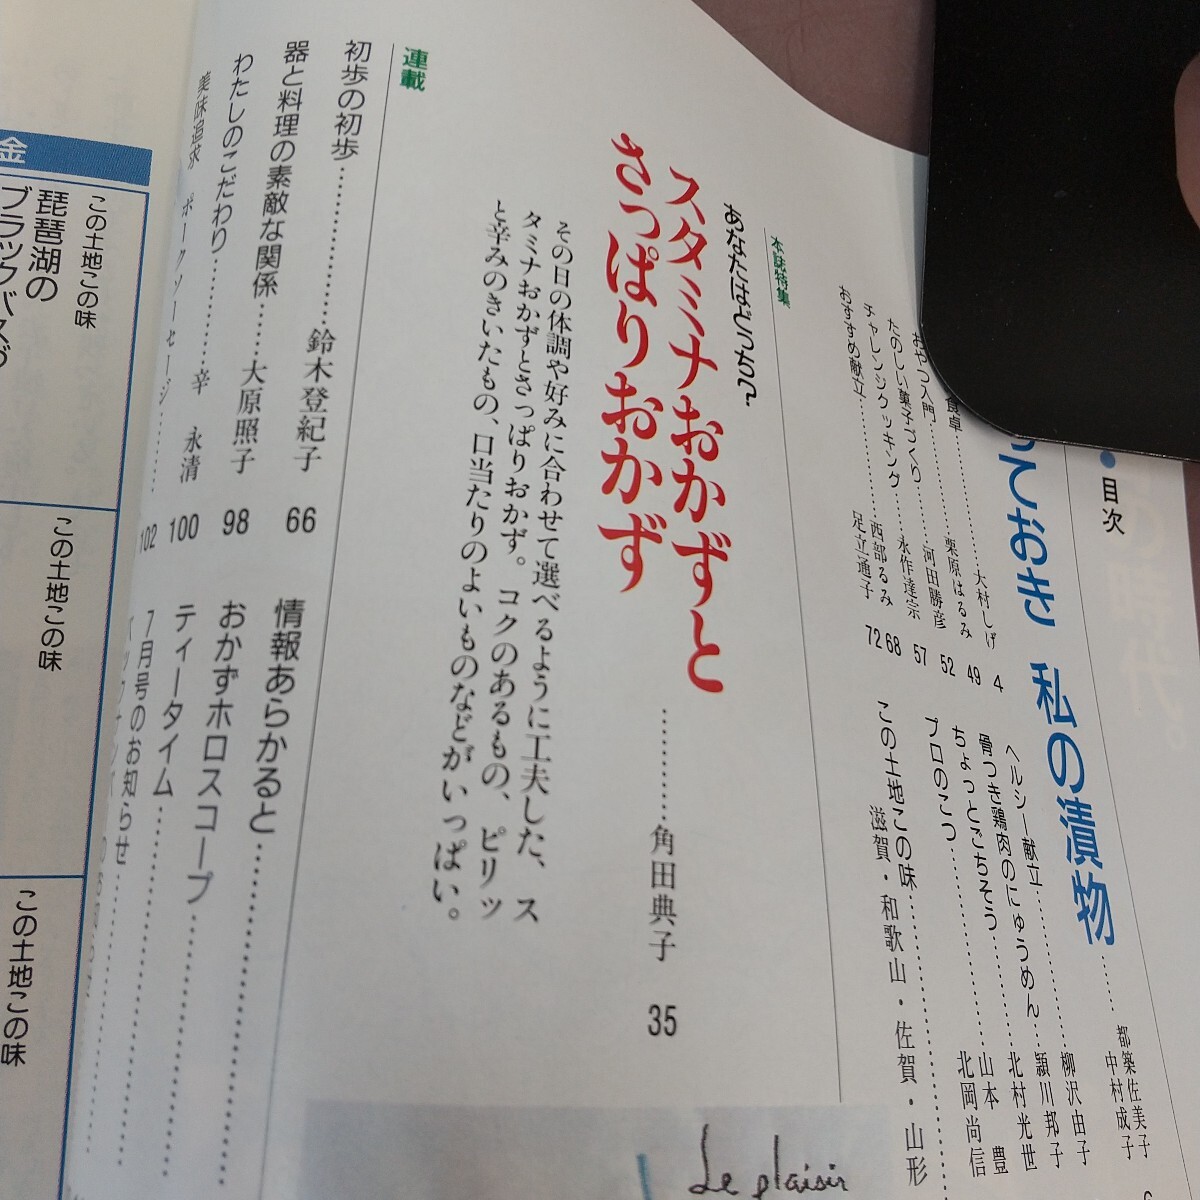 目次
ておき 私の漬物……
都築佐美子
中村成子
食卓……大村しげ 4
おやつ入門……栗原はるみ 49
たのしい菓子づくり……河田勝彦 52
チャレンジクッキング……永作達宗 57
おすすめ献立……西部るみ 68
足立通子 72
ヘルシー献立……柳沢由子
頴川邦子
骨つき鶏肉のにゅうめん……北村光世
ちょっとごちそう……山本 豊
プロのこつ……北岡尚信
この土地この味……
滋賀・和歌山・佐賀・山形
本誌特集
あなたはどっち?
スタミナおかずと
さっぱりおかず
……角田典子 35
その日の体調や好みに合わせて選べるように工夫した、ス
タミナおかずとさっぱりおかず。コクのあるもの、ピリッ
と辛みのきいたもの、口当たりのよいものなどがいっぱい。
Le plaisir
連載
初歩の初歩……鈴木登紀子 66
器と料理の素敵な関係……大原照子 98
わたしのこだわり……辛 永清 100
美味追求 ポークソーセージ…… 102
情報あらかると……
おかずホロスコープ……
ティータイム……
7月号のお知らせ……
金
この土地この味
琵琶湖の
ブラックバスが
この土地この味
この土地この味